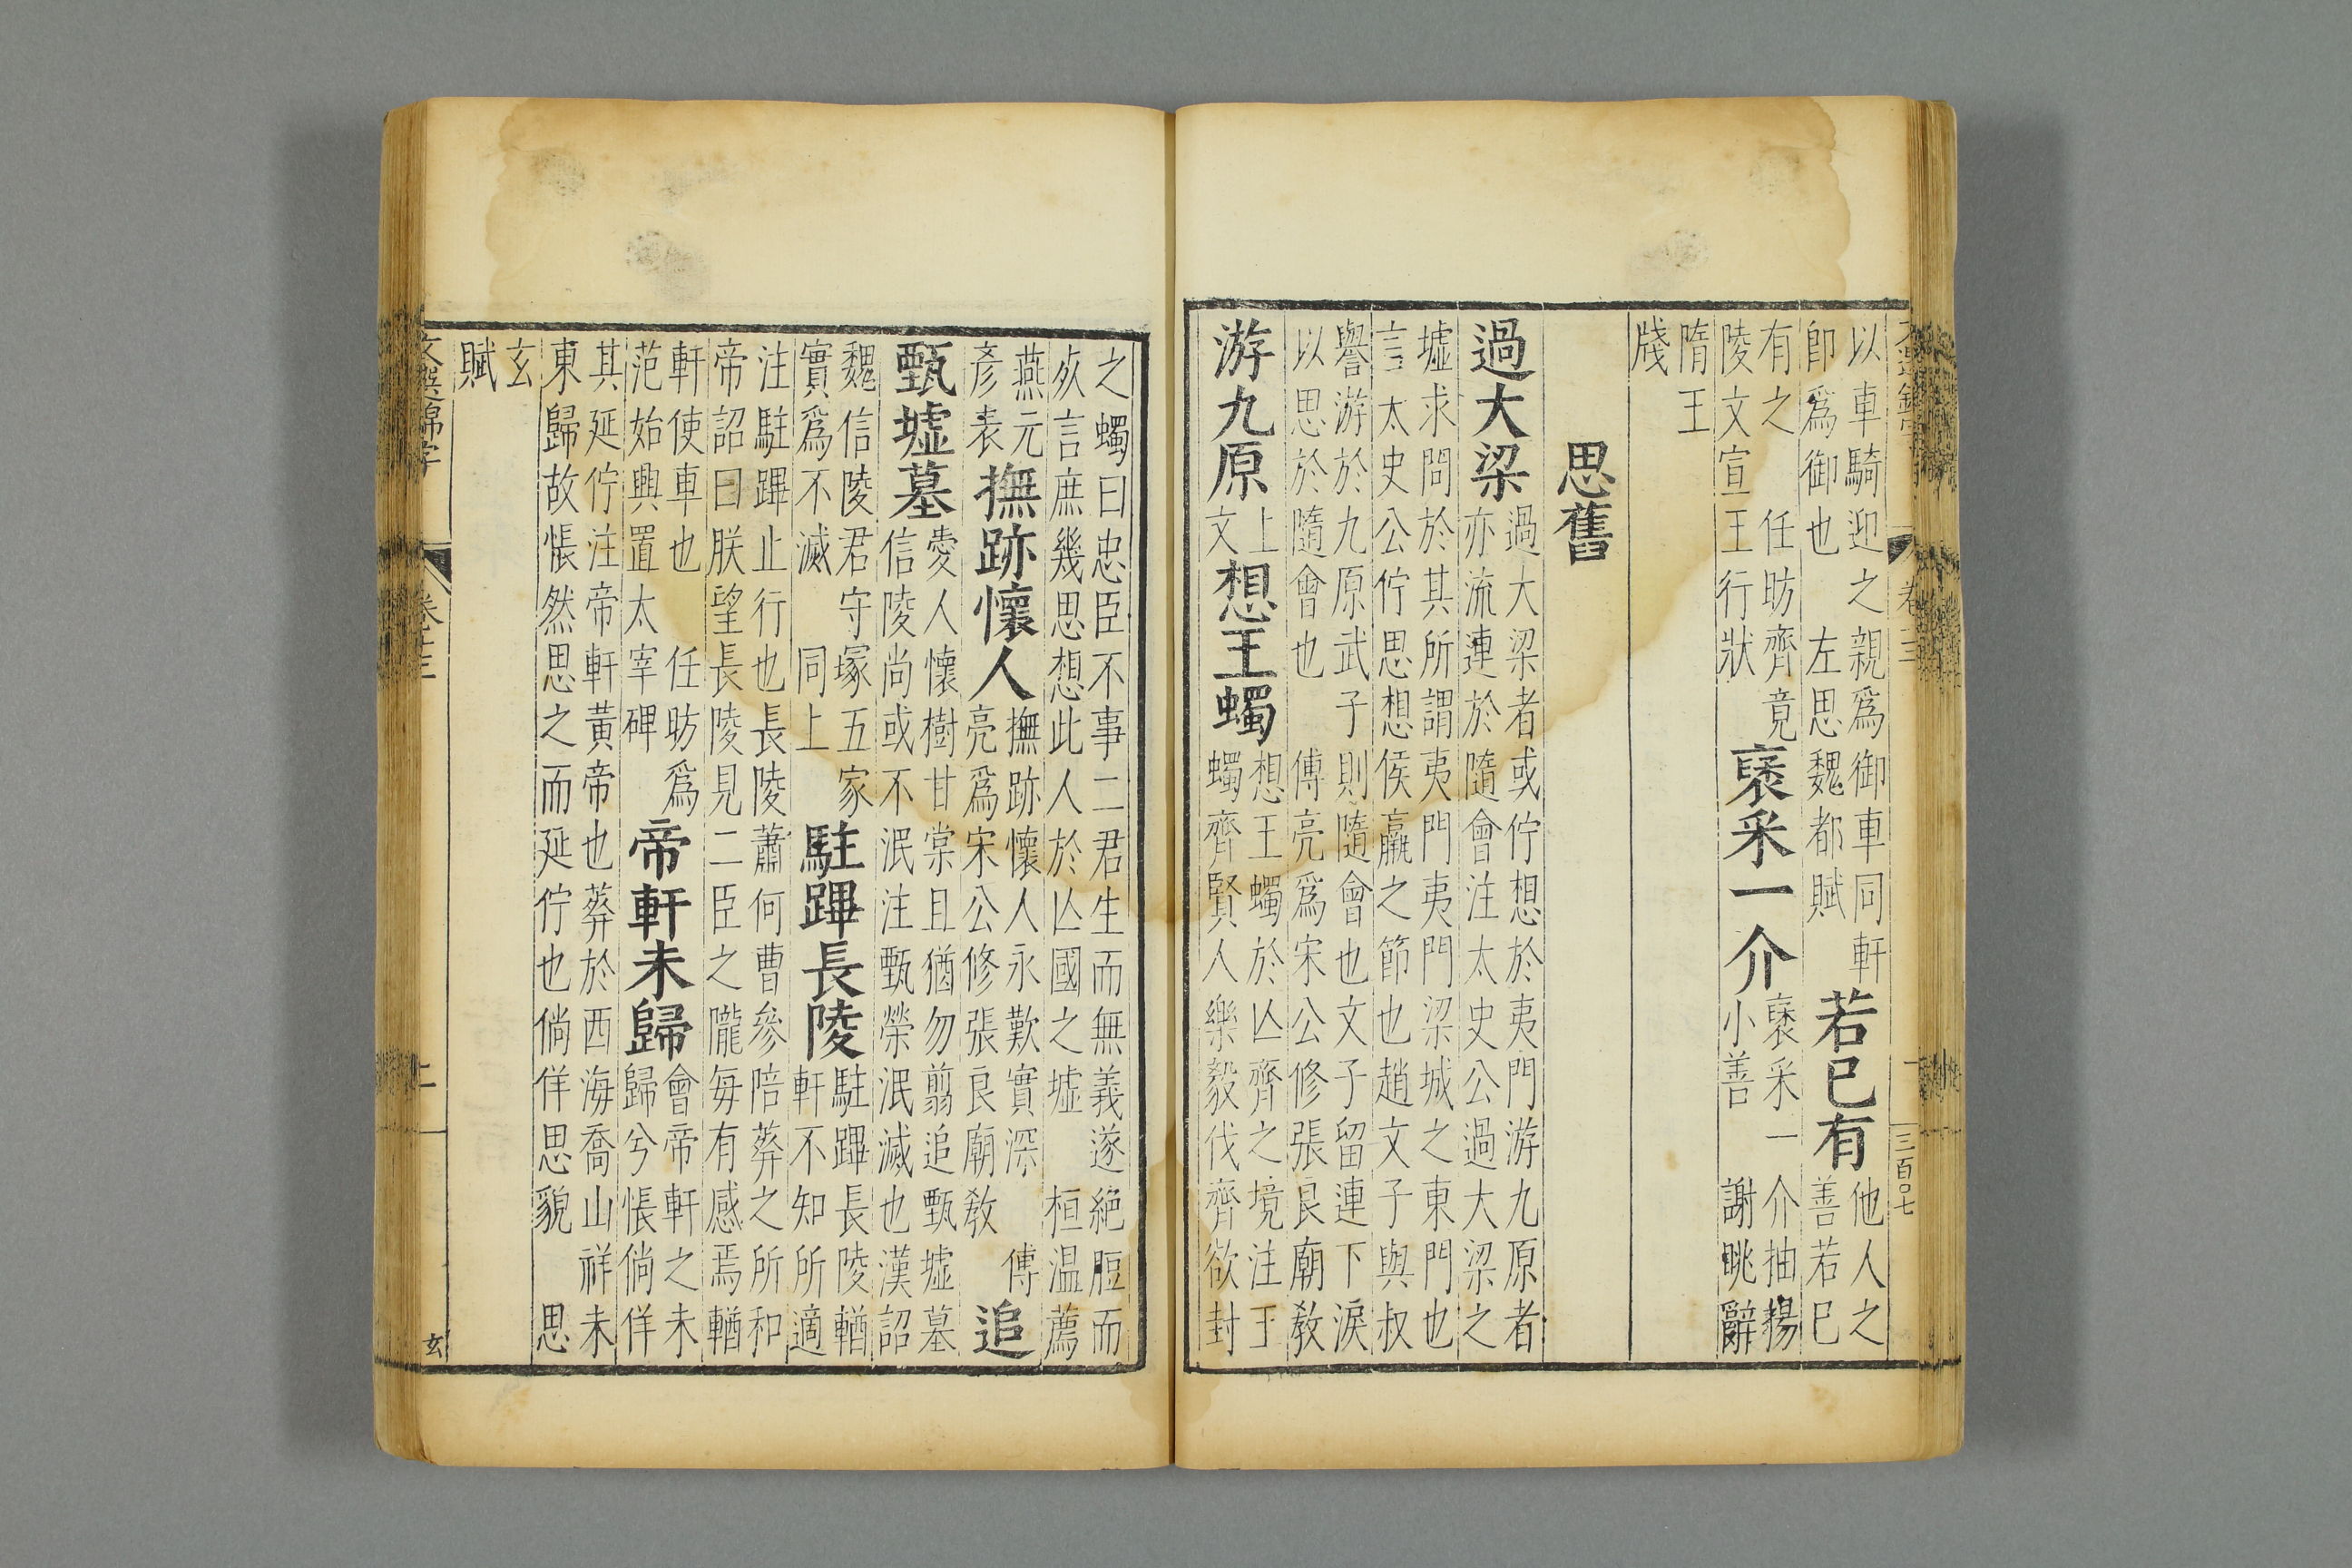 以車騎迎之親爲御車同軒
卽爲御也 左思魏都賦
若已有
他人之
善若已
有之 任昉齊竟
陵文宣王行狀
襃采一介
襃采一介抽揚
小善 謝朓辭
隋王
牋
思舊
過大梁
過大梁者或佇想於夷門游九原者
亦流連於隨會注太史公過大梁之
墟求問於其所謂夷門夷門梁城之東門也
言太史公佇思想侯嬴之節也趙文子與叔
譽游於九原武子則隨會也文子留連下淚
以思於隨會也 傅亮爲宋公修張良廟敎
游九原
上
文
想王蠋
想王蠋於亾齊之境注王
蠋齊賢人樂毅伐齊欲封
三百〇七
之蠋曰忠臣不事二君生而無義遂絕脰而
㱙言庶幾思想此人於亾國之墟 桓温薦
燕元
彥表
撫跡懷人
撫跡懷人永歎實深 傅
亮爲宋公修張良廟敎
追
甄墟墓
愛人懷樹甘棠且猶勿翦追甄墟墓
信陵尚或不泯注甄榮泯滅也漢詔
魏信陵君守塚五家
實爲不滅 同上
駐蹕長陵
駐蹕長陵輶
軒不知所適
注駐蹕止行也長陵蕭何曹參陪葬之所和
帝詔曰朕望長陵見二臣之隴每有感焉輶
軒使車也 任昉爲
范始興置太宰碑
帝軒未歸
會帝軒之未
歸兮悵倘佯
其延佇注帝軒黃帝也葬於西海喬山祥未
東歸故悵然思之而延佇也倘佯思貌 思
玄
賦
文選錦字 卷三 二 玄